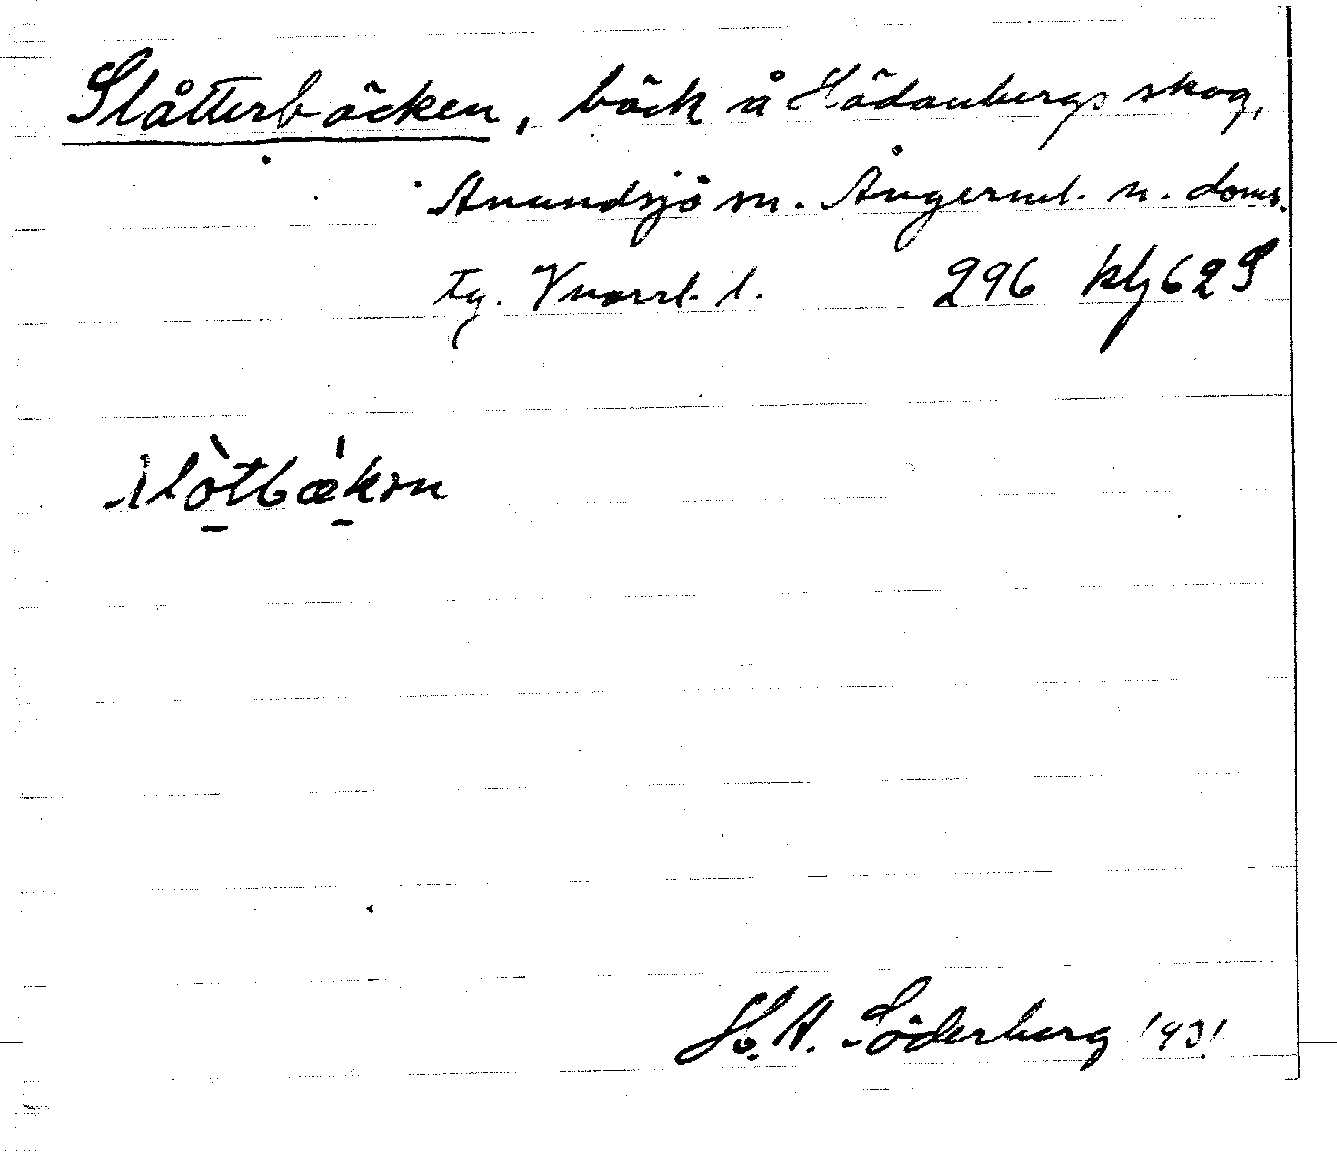 Slåtterbäcken, bäck å Hädanbergs skog,
Anundsjö sn. Ångerml. n. doms.
tg. Vnorrl. l. 296 klj 62 S
H. A. Söderberg 1931